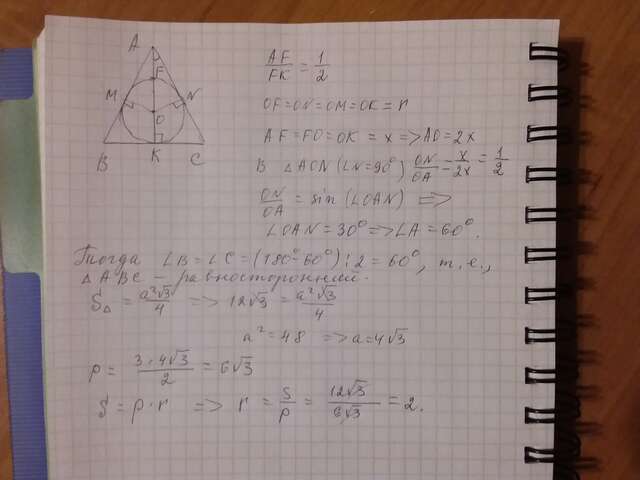 A
F
M N
O
B K C
AF/FK = 1/2
OF=ON=OM=OK=r
AF=FO=OK=x=>AO=2x
В △AON (∠N=90°) ON/OA = x/2x = 1/2
ON/OA = sin(∠OAN) =>
∠OAN=30°=>∠A=60°.
Тогда ∠B=∠C=(180°-60°):2=60°, т.е.,
△ABC - равносторонний.
S△ = a²√3/4 => 12√3 = a²√3/4
a²=48 => a=4√3
p= 3·4√3/2 = 6√3
S=p·r => r = S/p = 12√3/6√3 = 2.